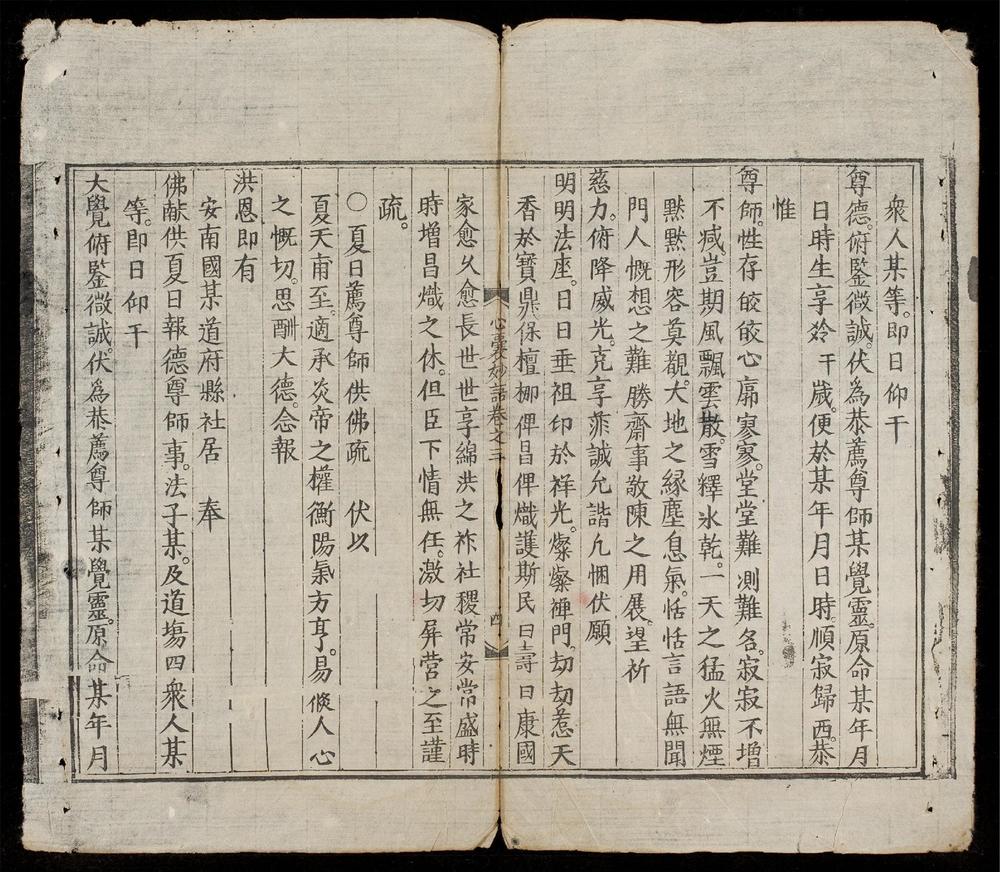 衆人某等。即日仰干
尊德。俯鑒微誠。伏爲恭薦尊師某覺靈。原命某年月
日時生享齡干歲。便於某年月日時。順寂歸西。恭
惟
尊師。性存皎皎心廓寥寥。堂堂難測難名。寂寂不增
不减豈期風飄雲散。雪釋氷乾。一天之猛火無煙
黙黙形容莫覩。大地之緣塵息氣。恬恬言語無聞
門人慨想之難勝齋事敬陳之用展。望祈
慈力。俯降威光。克享菲誠允諧凢悃伏願
明明法座。日日垂祖印於祥光。燦燦禅門。劫劫惹天
香於寳鼎保檀栁俾昌俾熾護斯民曰壽曰康國
家愈乆愈長世世享綿洪之祚社稷常安常盛時
時增昌熾之休。但臣下情無任。激切屏营之至謹
疏。
○夏日薦尊師供佛疏　伏以
夏天甫至。適承炎帝之權衡陽氣方亨。易倏人心
之慨切。思酬大德。念報
洪恩即有
安南國某道府縣社居　奉
佛献供夏日報德尊師事。法子某。及道塲四衆人某
等。即日仰干
大覺俯鑒微誠。伏爲恭薦尊師某覺靈。原命某年月
心要妙語卷之三
四